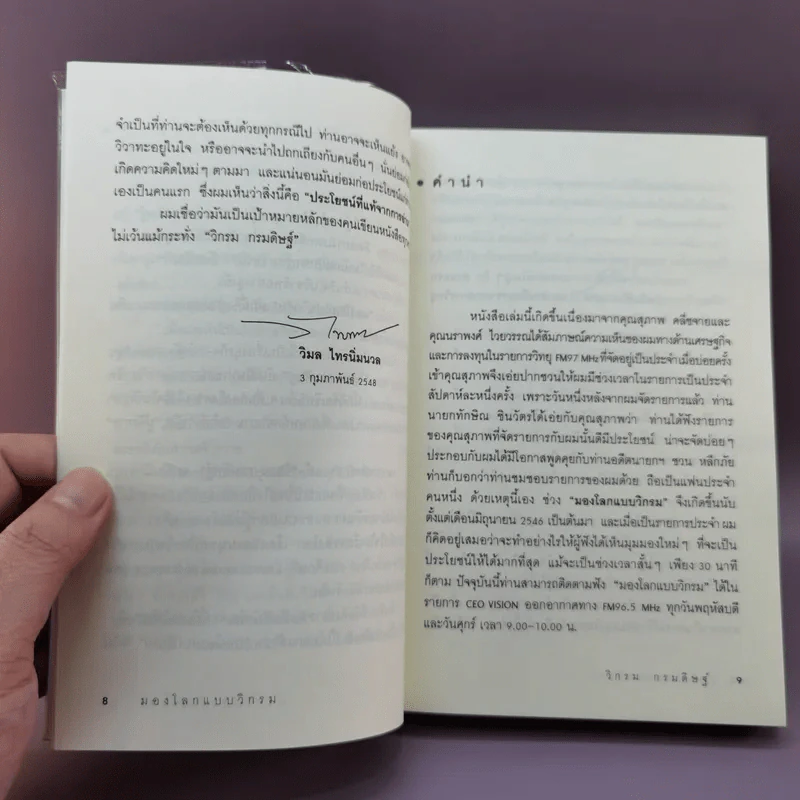 จำเป็นที่ท่านจะต้องเห็นด้วยทุกกรณีไป ท่านอาจจะเห็นแย้ง
วิวาทะอยู่ในใจ หรืออาจจะนำไปถกเถียงกับคนอื่นๆ นั่นย่อม
เกิดความคิดใหม่ๆ ตามมา และแน่นอนมันย่อมก่อประโยชน์
เองเป็นคนแรก ซึ่งผมเห็นว่าสิ่งนี้คือ "ประโยชน์ที่แท้จากการ
ผมเชื่อว่ามันเป็นเป้าหมายหลักของคนเขียนหนังสือ
ไม่เว้นแม้กระทั่ง "วิกรม กรมดิษฐ์"
วิมล ไทรนิ่มนวล
3 กุมภาพันธ์ 2548
8 มองโลกแบบวิกรม
• คำนำ
หนังสือเล่มนี้เกิดขึ้นเนื่องมาจากคุณสุภาพ คลี่ขจายและ
คุณนราพงศ์ ไวยวรรณได้สัมภาษณ์ความเห็นของผมทางด้านเศรษฐกิจ
และการลงทุนในรายการวิทยุ FM97 MHz ที่จัดอยู่เป็นประจำเมื่อบ่อยครั้ง
เข้าคุณสุภาพจึงเอ่ยปากชวนให้ผมมีช่วงเวลาในรายการเป็นประจำ
สัปดาห์ละหนึ่งครั้ง เพราะวันหนึ่งหลังจากผมจัดรายการแล้ว ท่าน
นายกทักษิณ ชินวัตรได้เอ่ยกับคุณสุภาพว่า ท่านได้ฟังรายการ
ของคุณสุภาพที่จัดรายการกับผมนั้นดีมีประโยชน์ น่าจะจัดบ่อยๆ
ประกอบกับผมได้มีโอกาสพูดคุยกับท่านอดีตนายกฯ ชวน หลีกภัย
ท่านก็บอกว่าท่านชมชอบรายการของผมด้วย ถือเป็นแฟนประจำ
คนหนึ่ง ด้วยเหตุนี้เอง ช่วง "มองโลกแบบวิกรม" จึงเกิดขึ้นนับ
ตั้งแต่เดือนมิถุนายน 2546 เป็นต้นมา และเมื่อเป็นรายการประจำ ผม
ก็คิดอยู่เสมอว่าจะทำอย่างไรให้ผู้ฟังได้เห็นมุมมองใหม่ๆ ที่จะเป็น
ประโยชน์ให้ได้มากที่สุด แม้จะเป็นช่วงเวลาสั้นๆ เพียง 30 นาที
ก็ตาม ปัจจุบันนี้ท่านสามารถติดตามฟัง "มองโลกแบบวิกรม" ได้ใน
รายการ CEO VISION ออกอากาศทาง FM96.5 MHz ทุกวันพฤหัสบดี
และวันศุกร์ เวลา 9.00-10.00 น.
วิกรม กรมดิษฐ์ 9